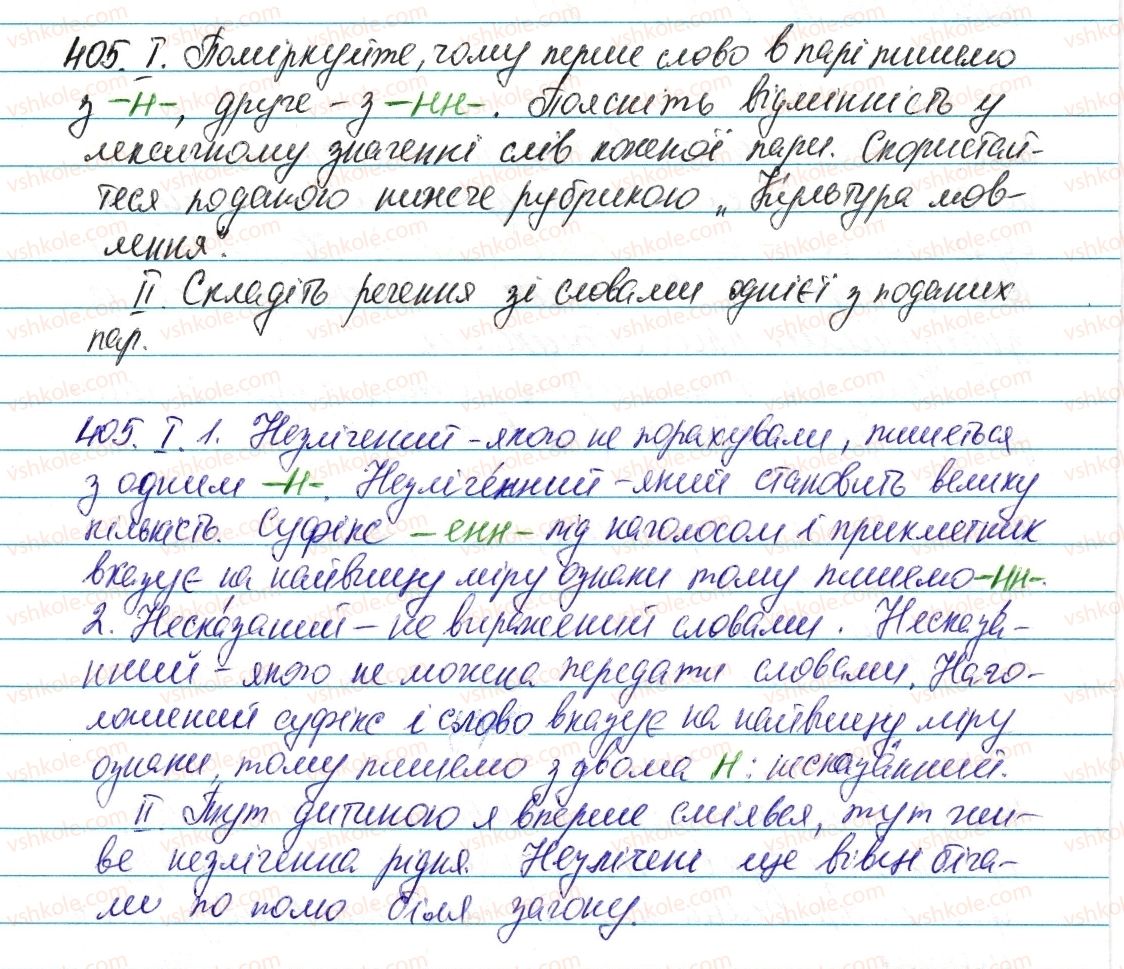 405. І. Поміркуйте, чому перше слово в парі пишемо
з -н-, друге - з -нн-. Поясніть відмінність у
лексичному значенні слів кожної пари. Скористай-
теся поданою нижче рубрикою „Культура мов-
лення".
ІІ Складіть речення зі словами однієї з поданих
пар.
405. І. 1. Незлічений - якого не порахували, пишеться
з одним -н-. Незліче́нний - який становить велику
кількість. Суфікс -енн- під наголосом і прикметник
вказує на найвищу міру ознаки тому пишемо -нн-.
2. Неска́заний - не виражений словами. Несказа́-
нний - якого не можна передати словами. Наго-
лошений суфікс і слово вказує на найвищу міру
ознаки, тому пишемо з двома н: несказа́нний.
ІІ. Тут дитиною я вперше сміявся, тут жи-
ве незліченна рідня. Незлічені ще вівці біга-
ли по полю біля загону.
vshkole.com